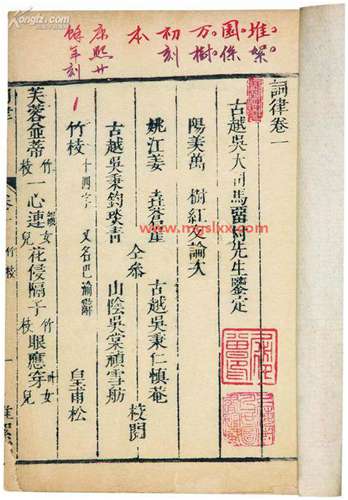 堆絮
園係
萬樹
初刻
本
康熙廿
餘年刻
詞律卷一
古越吳大司馬留村先生鑒定
陽羨萬 樹紅友論次
姚江姜 垚蒼崖
古越吳秉鈞琰青
仝參
古越吳秉仁慎菴
山陰吳棠禎雪舫
校閱
竹枝 十四字 又名巴渝辭 皇甫松
芙蓉並蒂竹枝一心連女兒花侵隔子竹枝眼應穿女兒
竹枝
www.mgslkx.com